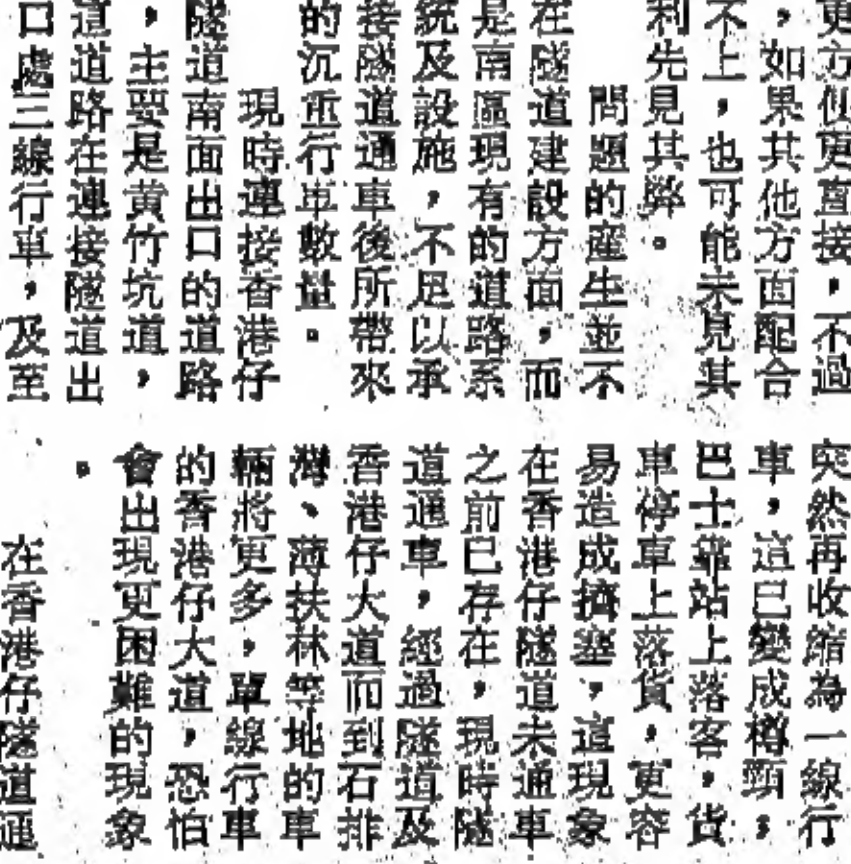 更方便更直接，不過
，如果其他方面配合
不上，也可能未見其
利先見其弊。
問題的產生並不
在隧道建設方面，而
是南區現有的道路系
統及設施，不足以承
接隧道通車後所帶來
的沉重行車數量。
現時連接香港仔
隧道南面出口的道路
，主要是黃竹坑道，
這道路在連接隧道出
口處三線行車，及至
突然再收縮為一線行
車，這已變成樽頸，
巴士靠站上落客，貨
車停車上落貨，更容
易造成擠塞，這現象
在香港仔隧道未通車
之前已存在，現時隧
道通車，經過隧道及
香港仔大道而到石排
灣、薄扶林等地的車
輛將更多，單線行車
的香港仔大道，恐怕
會出現更困難的現象
。
在香港仔隧道通